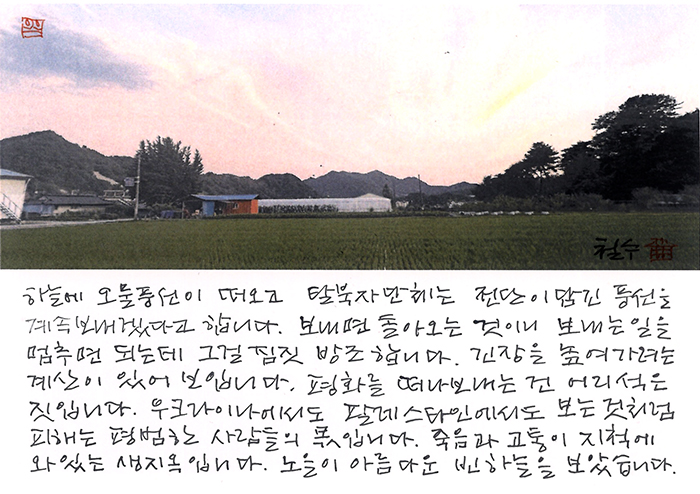 철수
하늘에 오물풍선이 떠오고 탈북자단체는 전단이 담긴 풍선을
계속보내겠다고 합니다. 보내면 돌아오는 것이니 보내는 일을
멈추면 되는데 그걸 짐짓 방조합니다. 긴장을 높여가려는
계산이 있어 보입니다. 평화를 떠나보내는 건 어리석은
짓입니다. 우크라이나에서도 팔레스타인에서도 보는것처럼
피해는 평범한 사람들의 몫입니다. 죽음과 고통이 지척에
와있는 생지옥입니다. 노을이 아름다운 빈하늘을 보았습니다.